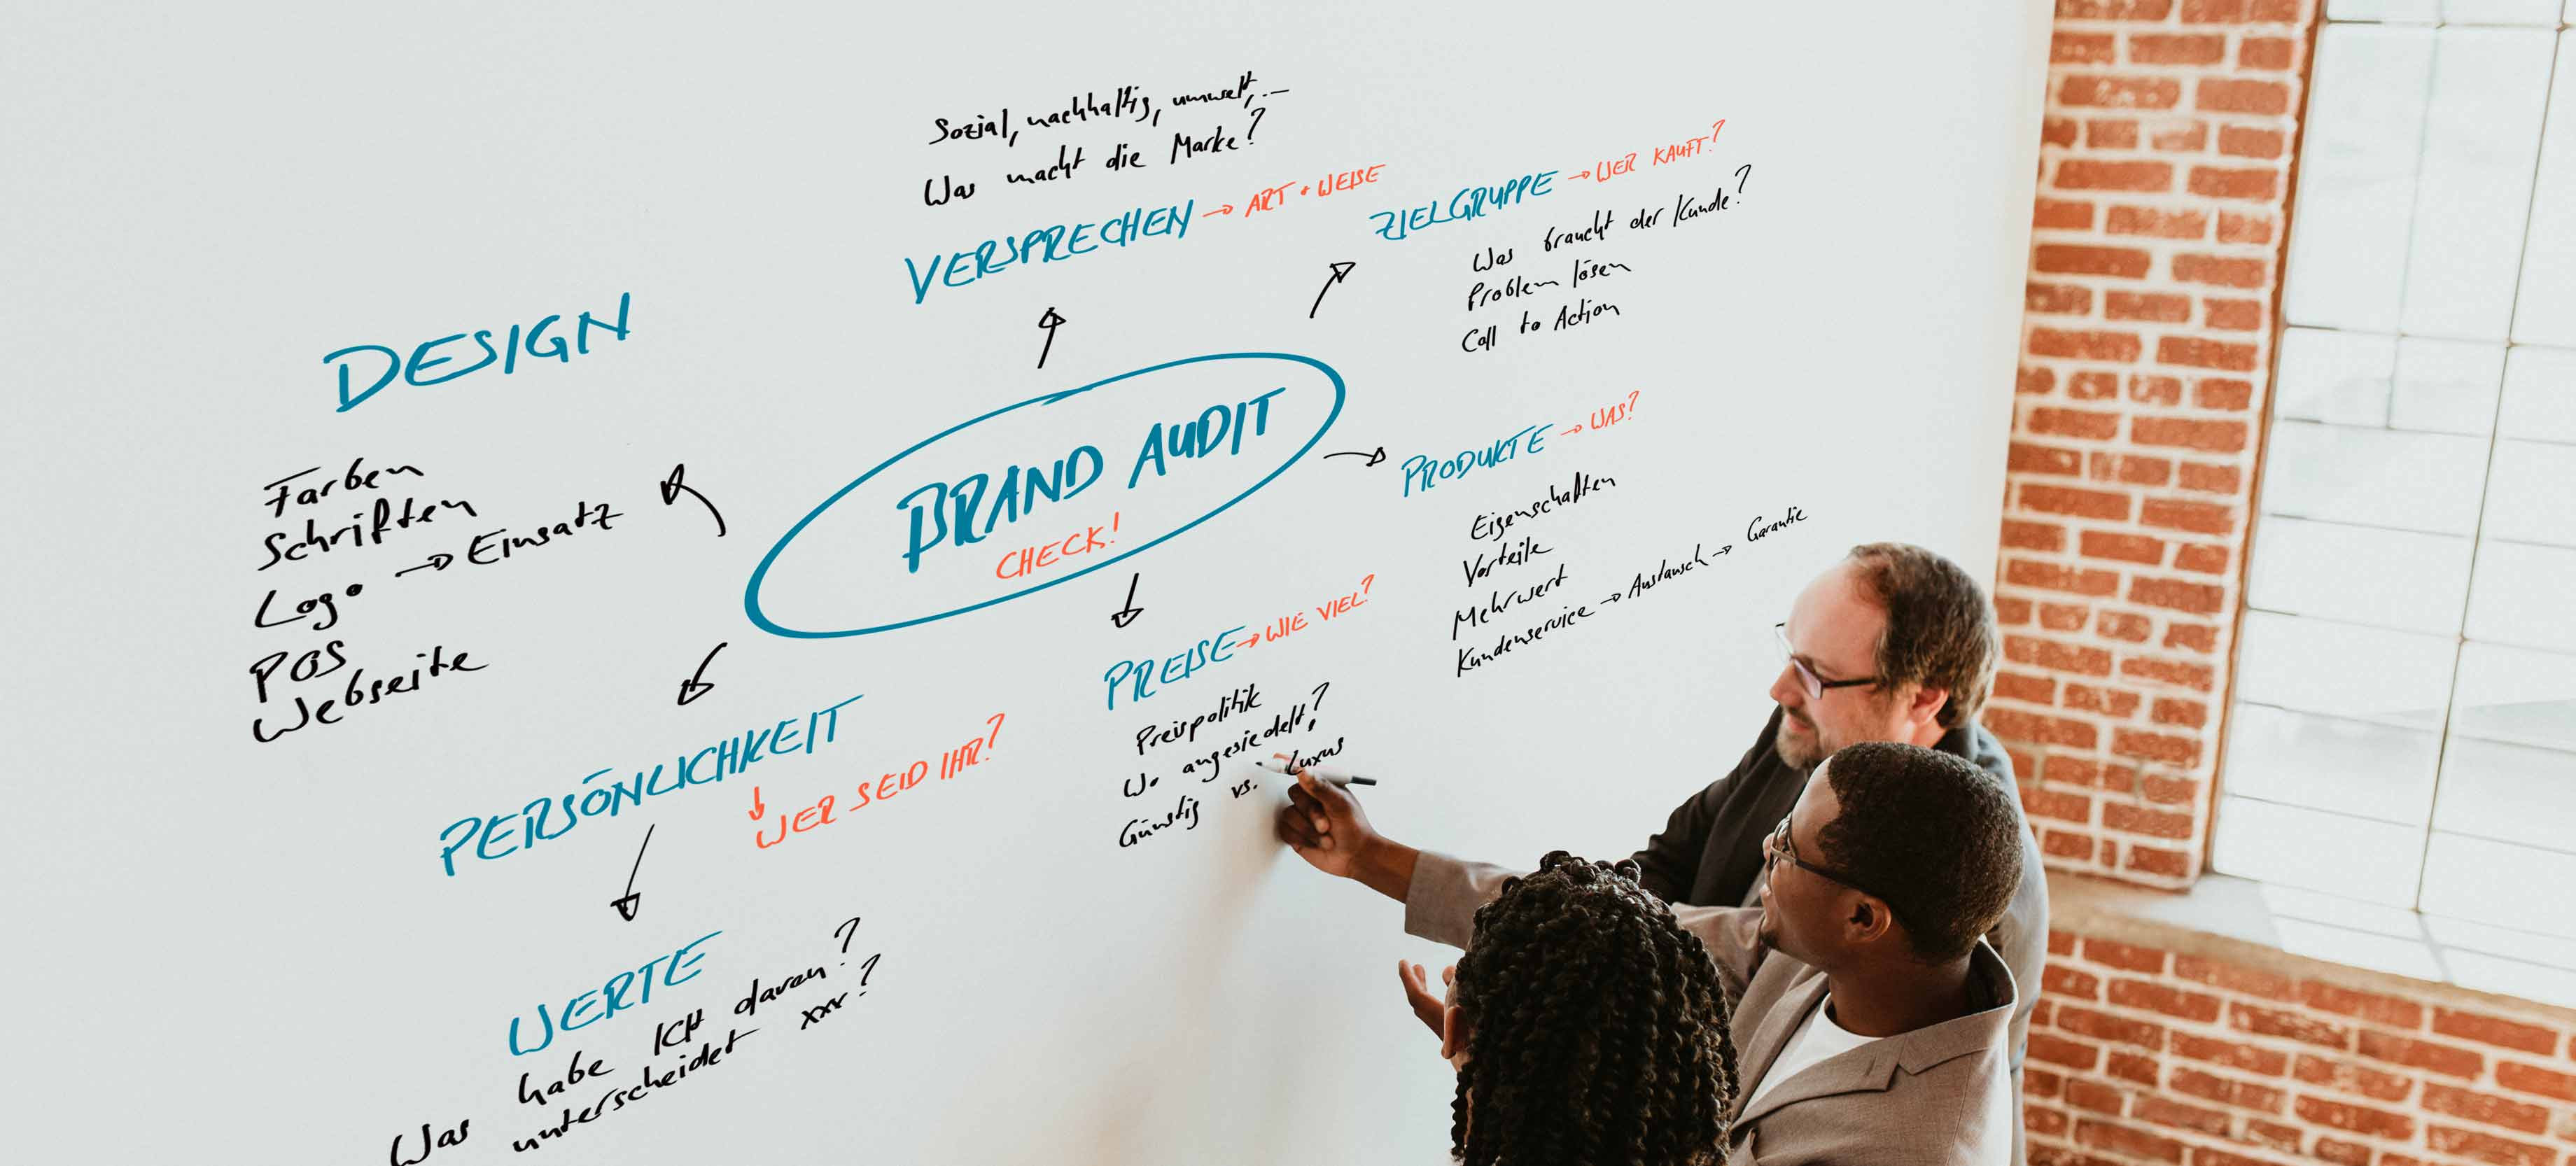 Sozial, nachhaltig, umwelt,...
Was macht die Marke?
VERSPRECHEN → ART + WEISE
ZIELGRUPPE → WER KAUFT?
Was braucht der Kunde?
Problem lösen
Call to Action
DESIGN
Farben
Schriften
Logo → Einsatz
POS
Webseite
BRAND AUDIT
CHECK!
PRODUKTE → WAS?
Eigenschaften
Vorteile
Mehrwert
Kundenservice → Austausch → Garantie
PREISE → WIE VIEL?
Preispolitik
Wo angesiedelt?
Günstig vs. Luxus
PERSÖNLICHKEIT
↓
WER SEID IHR?
WERTE
Was habe ICH davon?
unterscheidet xxx?